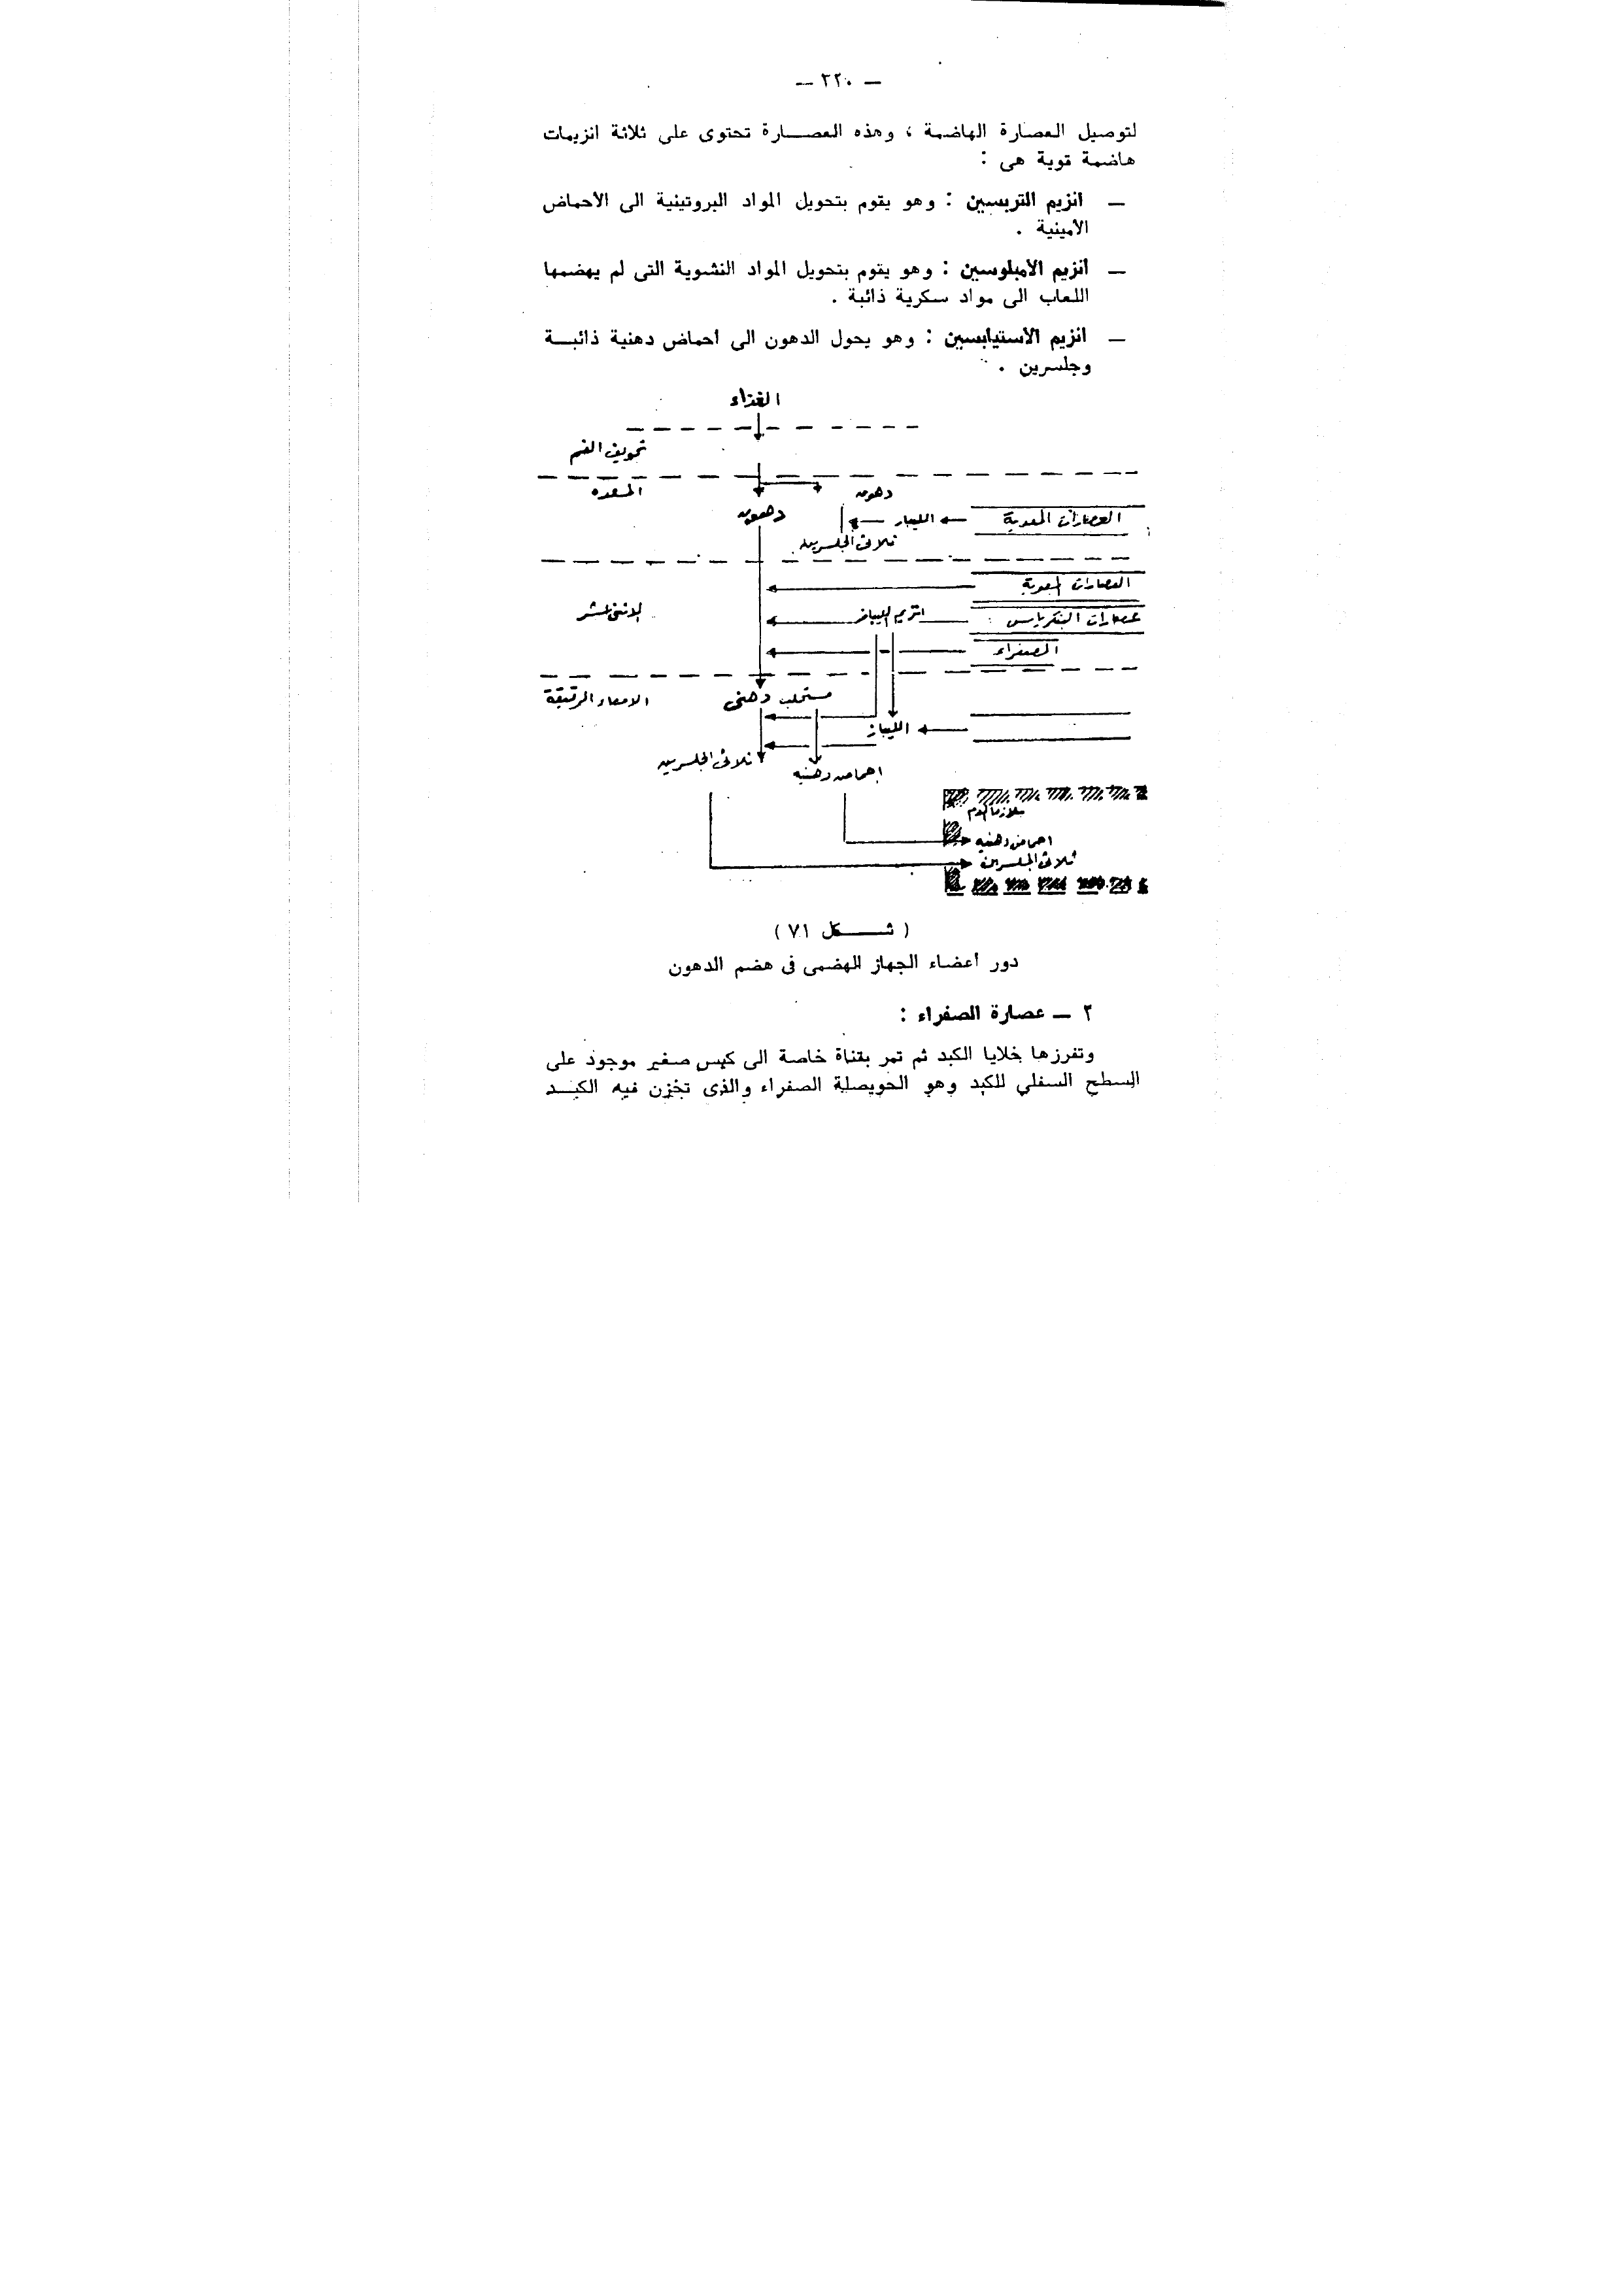 — ٢٢٠ —
لتوصيل العصارة الهاضمة ، وهذه العصـــارة تحتوى على ثلاثة انزيمات
هاضمة قوية هى :
— انزيم التربسين : وهو يقوم بتحويل المواد البروتينية الى الأحماض
الأمينية .
— انزيم الأمبلوسين : وهو يقوم بتحويل المواد النشوية التى لم يهضمها
اللعاب الى مواد سكرية ذائبة .
— انزيم الأستيابسين : وهو يحول الدهون الى أحماض دهنية ذائبـــة
وجلسرين .
الغذاء
تجويف الفم
المعده
دهون
دهون
العصارات المعدية
الليباز
ثلاثى الجلسرين
العصارات المعوية
الاثنى عشر
انزيم الليباز
عصارات البنكرياس
الصفراء
الامعاء الرقيقة
مستحلب دهنى
الليباز
ثلاثى الجلسرين
احماض دهنيه
بلازما الدم
احماض دهنيه
ثلاثى الجلسرين
( شـــــكل ٧١ )
دور أعضاء الجهاز الهضمى فى هضم الدهون
٢ — عصارة الصفراء :
وتفرزها خلايا الكبد ثم تمر بقناة خاصة الى كيس صغير موجود على
السطح السفلي للكبد وهو الحويصلة الصفراء والذى تخزن فيه الكبـــد